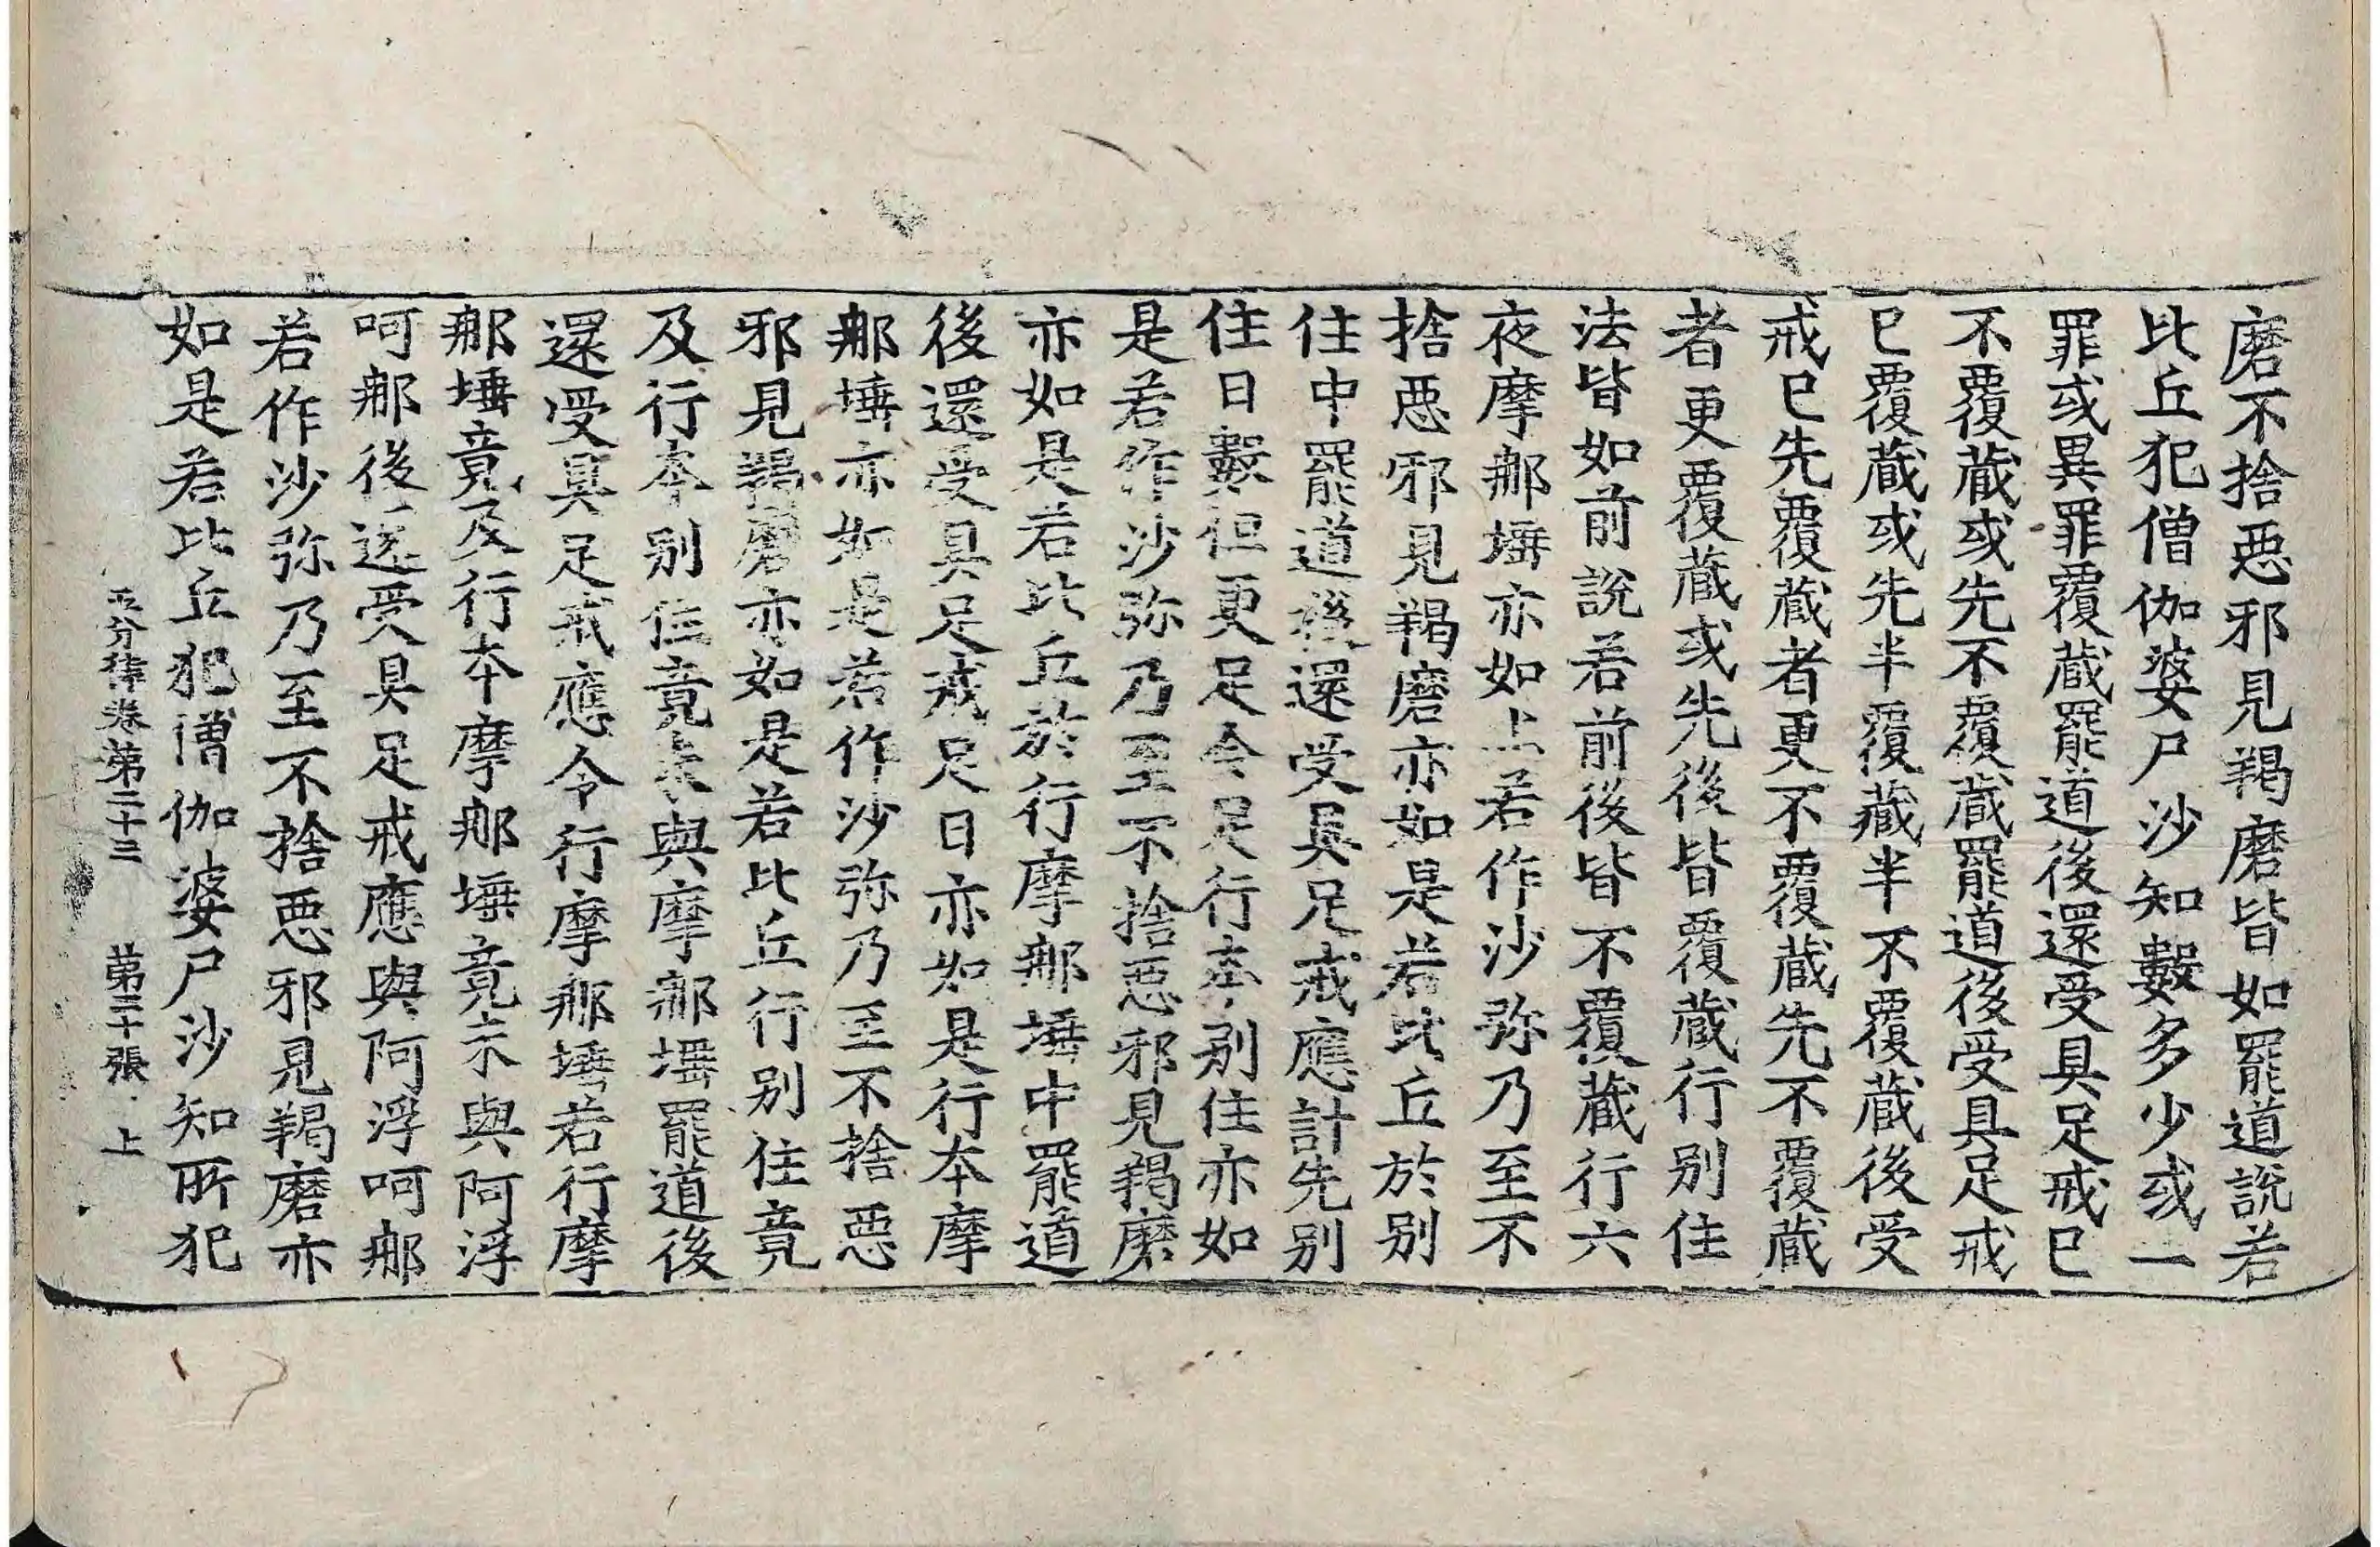 磨不捨惡邪見羯磨皆如罷道說若
比丘犯僧伽婆尸沙知數多少或一
罪或異罪覆藏罷道後還受具足戒已
不覆藏或先不覆藏罷道後受具足戒
已覆藏或先半覆藏半不覆藏後受
戒已先覆藏者更不覆藏先不覆藏
者更覆藏或先後皆覆藏行别住
法皆如前說若前後皆不覆藏行六
夜摩那埵亦如上若作沙弥乃至不
捨惡邪見羯磨亦如是若比丘於别
住中罷道後還受具足戒應計先别
住日數但更足令足行本别住亦如
是若作沙弥乃至不捨惡邪見羯磨
亦如是若比丘於行摩那埵中罷道
後還受具足戒足日亦如是行本摩
那埵亦如是若作沙弥乃至不捨惡
邪見羯磨亦如是若比丘行别住竟
及行本别住竟未與摩那埵罷道後
還受具足戒應令行摩那埵若行摩
那埵竟及行本摩那埵竟未與阿浮
呵那後還受具足戒應與阿浮呵那
若作沙弥乃至不捨惡邪見羯磨亦
如是若比丘犯僧伽婆尸沙知所犯
五分律卷第二十三 第三十張 上